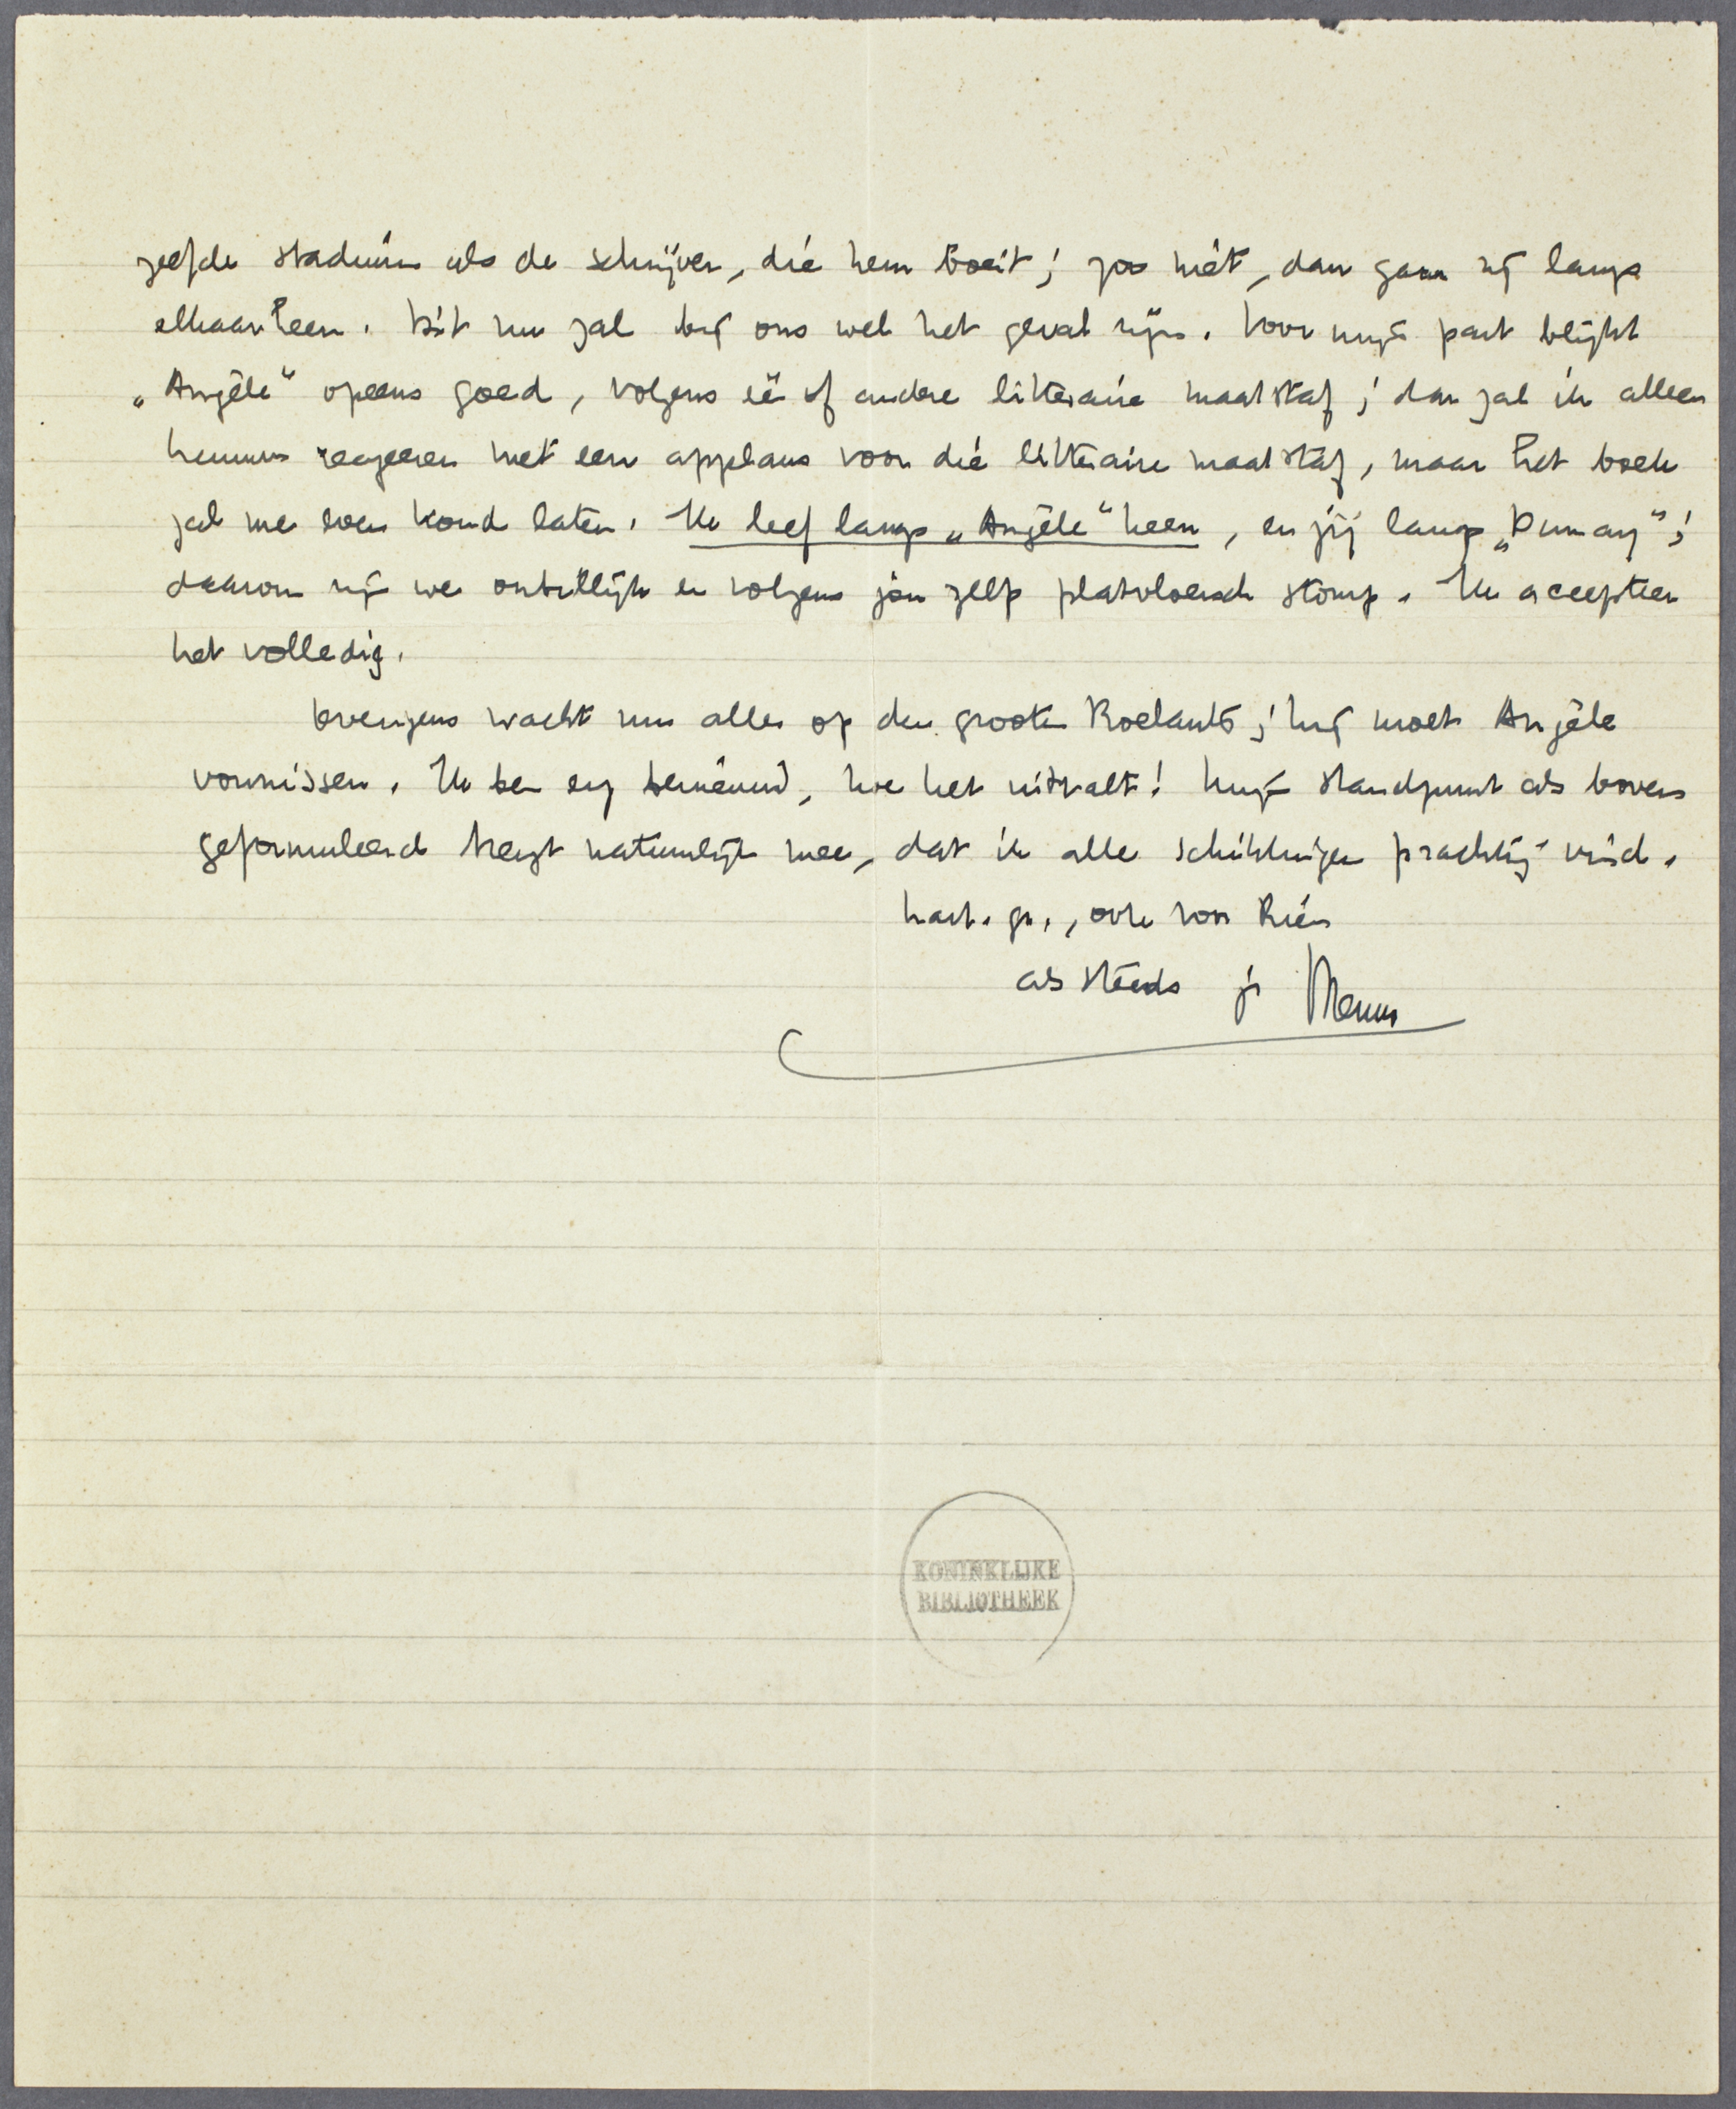 zelfde stadium als de schrijver, dié hem boeit; zoo niet, dan gaan zij langs
elkaar heen. Dit nu zal bij ons wel het geval zijn. Voor mijn part blijkt
„Angèle" opeens goed, volgens één of andere litteraire maatstaf; dan zal ik alleen
kunnen reageeren met een applaus voor dié litteraire maatstaf, maar het boek
zal me even koud laten. Ik leef langs „Angèle" heen, en jij langs „Dumay";
daarom zijn we onbillijk en volgens jou zelfs platvloersch stomp. Ik accepteer
het volledig.
Overigens wacht nu alles op den grooten Roelants; hij moet Angèle
vonnissen. Ik ben erg benieuwd, hoe het uitvalt! Mijn standpunt als boven
geformuleerd brengt natuurlijk mee, dat ik alle schikkingen prachtig vind.
hart. gr., ook van Rien
als steeds je Menno
KONINKLIJKE
BIBLIOTHEEK